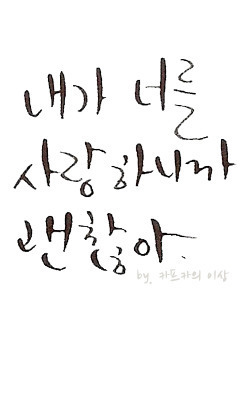 내가 너를
사랑하니까
괜찮아.
by. 카프카의 이상